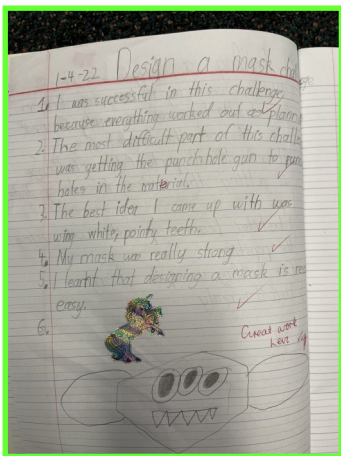 1-4-22 Design a mask challenge
1. I was successful in this challenge
because everything worked out as plann
2. The most difficult part of this challe
was getting the punchhole gun to punc
holes in the material.
3. The best ider I came up with was
using white, pointy teeth.
4. My mask was really strong
5. I learnt that designing a mask is rea
easy.
6.
Great work